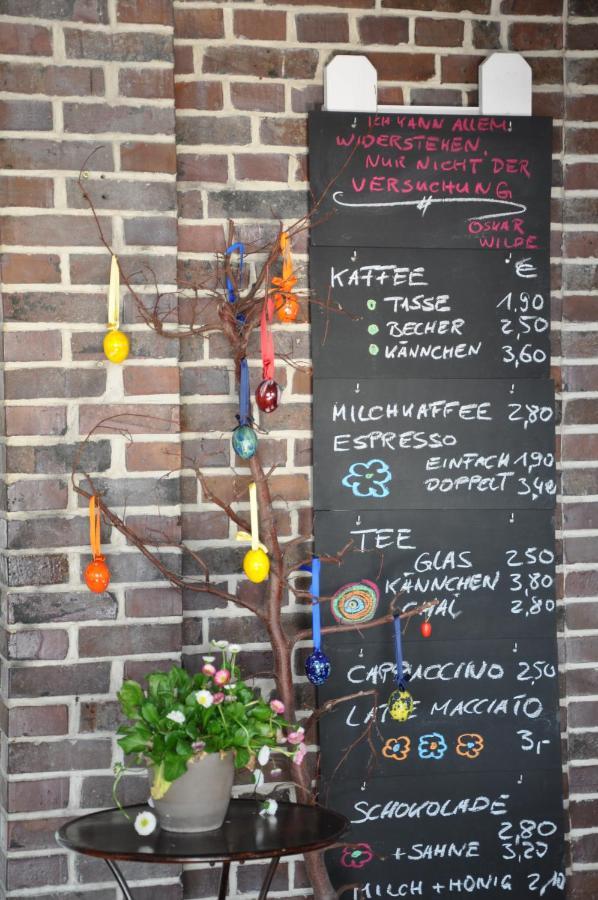 ICH KANN ALLEM
WIDERSTEHEN,
NUR NICHT DER
VERSUCHUNG
OSKAR
WILDE
€
KAFFEE
TASSE 1,90
BECHER 2,50
KÄNNCHEN 3,60
MILCHKAFFEE 2,80
ESPRESSO
EINFACH 1,90
DOPPELT 3,40
TEE
GLAS 2.50
KÄNNCHEN 3,80
CHAI 2,80
CAPPUCCINO 2,50
LATTE MACCIATO
3,-
SCHOKOLADE
2,80
+ SAHNE 3,20
MILCH + HONIG 2,10